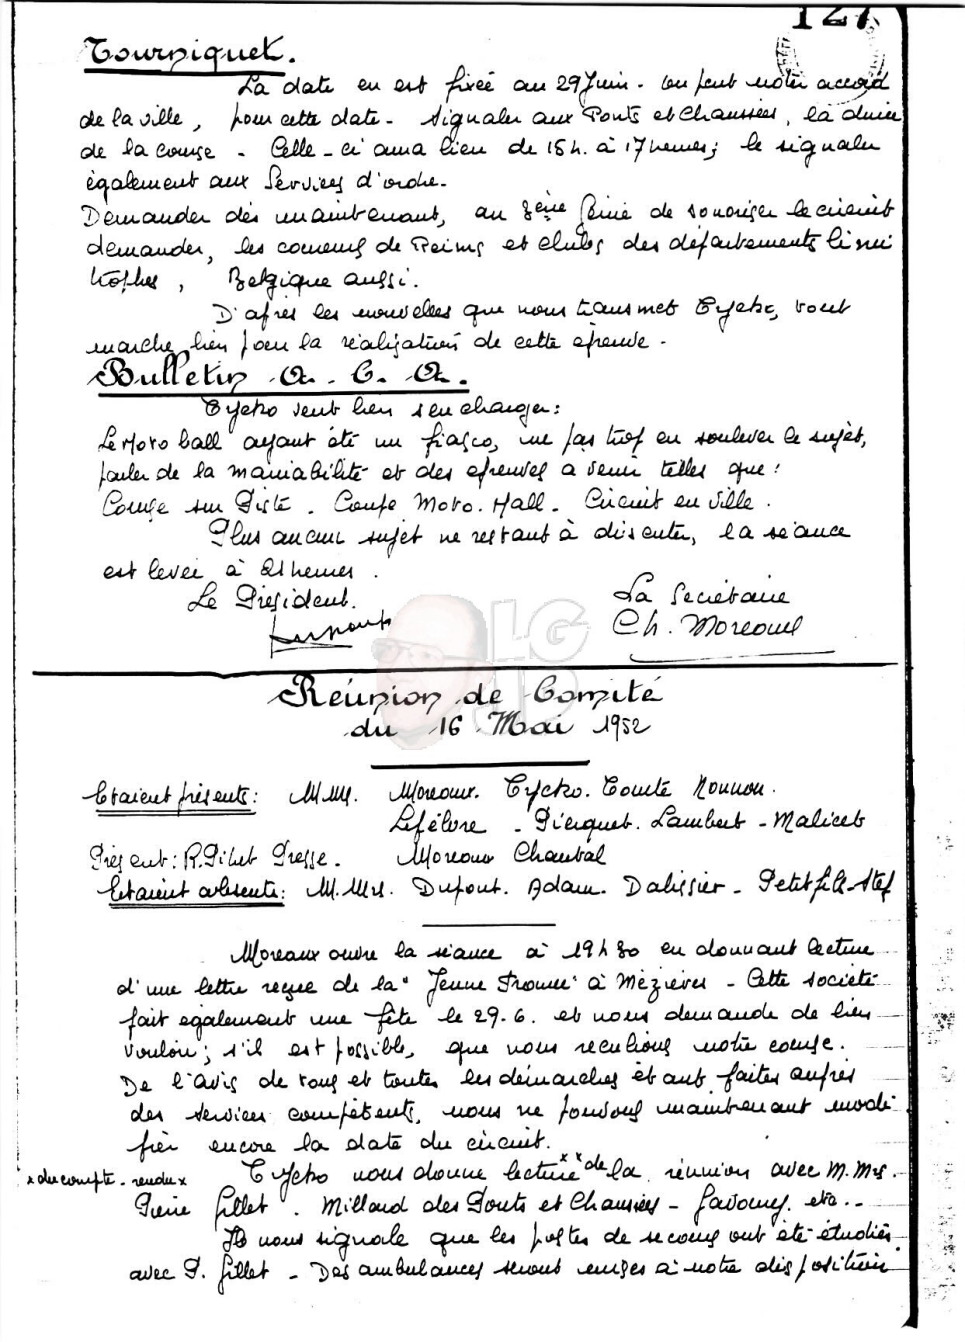 127
Tourniquet.
La date en est fixée au 29 Juin - on peut noter accord
de la ville, pour cette date - signaler aux Ponts et Chaussées, la durée
de la course - Celle-ci aura lieu de 15h. à 17 heures; le signaler
également aux Services d'ordre.
Demander dès maintenant, au 8ème Génie de sonoriser le circuit
demander, les coureurs de Reims et clubs des départements limi
trophes, Belgique aussi.
D'après les nouvelles que nous transmet Cycko, tout
marche bien pour la réalisation de cette épreuve.
Bulletin A. C. A.
Cycko veut bien s'en charger:
Le Moto ball ayant été un fiasco, ne pas trop en soulever le sujet,
parler de la maniabilité et des épreuves à venir telles que:
Course sur Piste. Coupe Moto. Hall. Circuit en ville.
Plus aucun sujet ne restant à discuter, la séance
est levée à 21 heures.
Le Président. La Secrétaire
Ch. Moreaux
LG
Réunion de Comité
du 16 Mai 1952
Etaient présents: M.M. Moreaux. Cycko. Comte Nonnon.
Lefèbvre - Pierquet. Lambert - Malicet
Présent: R. Pilut Presse. Moreaux Chantal
Etaient absents: M.Mrs. Dupont. Adam. Dalissier - Petitfils - Stef
Moreaux ouvre la séance à 19h30 en donnant lecture
d'une lettre reçue de la "Jeune France" à Mézières - Cette société
fait également une fête le 29.6. et nous demande de bien
vouloir, s'il est possible, que nous reculions notre course.
De l'avis de tous et toutes les démarches étant faites auprès
des services compétents, nous ne pouvons maintenant modi
fier encore la date du circuit.
x du compte-rendu x Cycko nous donne lecture xx de la réunion avec M. Mrs.
Pierre Gillet. Millard des Ponts et Chaussées - etc..
Il nous signale que les postes de secours ont été étudiés
avec P. Gillet - Des ambulances seront mises à notre disposition